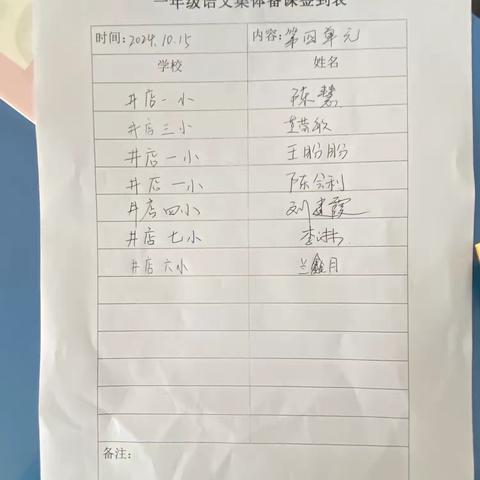 一年级语文集体备课签到表
时间: 2024.10.15 内容: 第四单元
学校 姓名
井店一小 陈慧
井店三小
井店一小 王盼盼
井店一小 陈会利
井店四小 刘建霞
井店七小 李琳
井店六小 兰鑫月
备注: